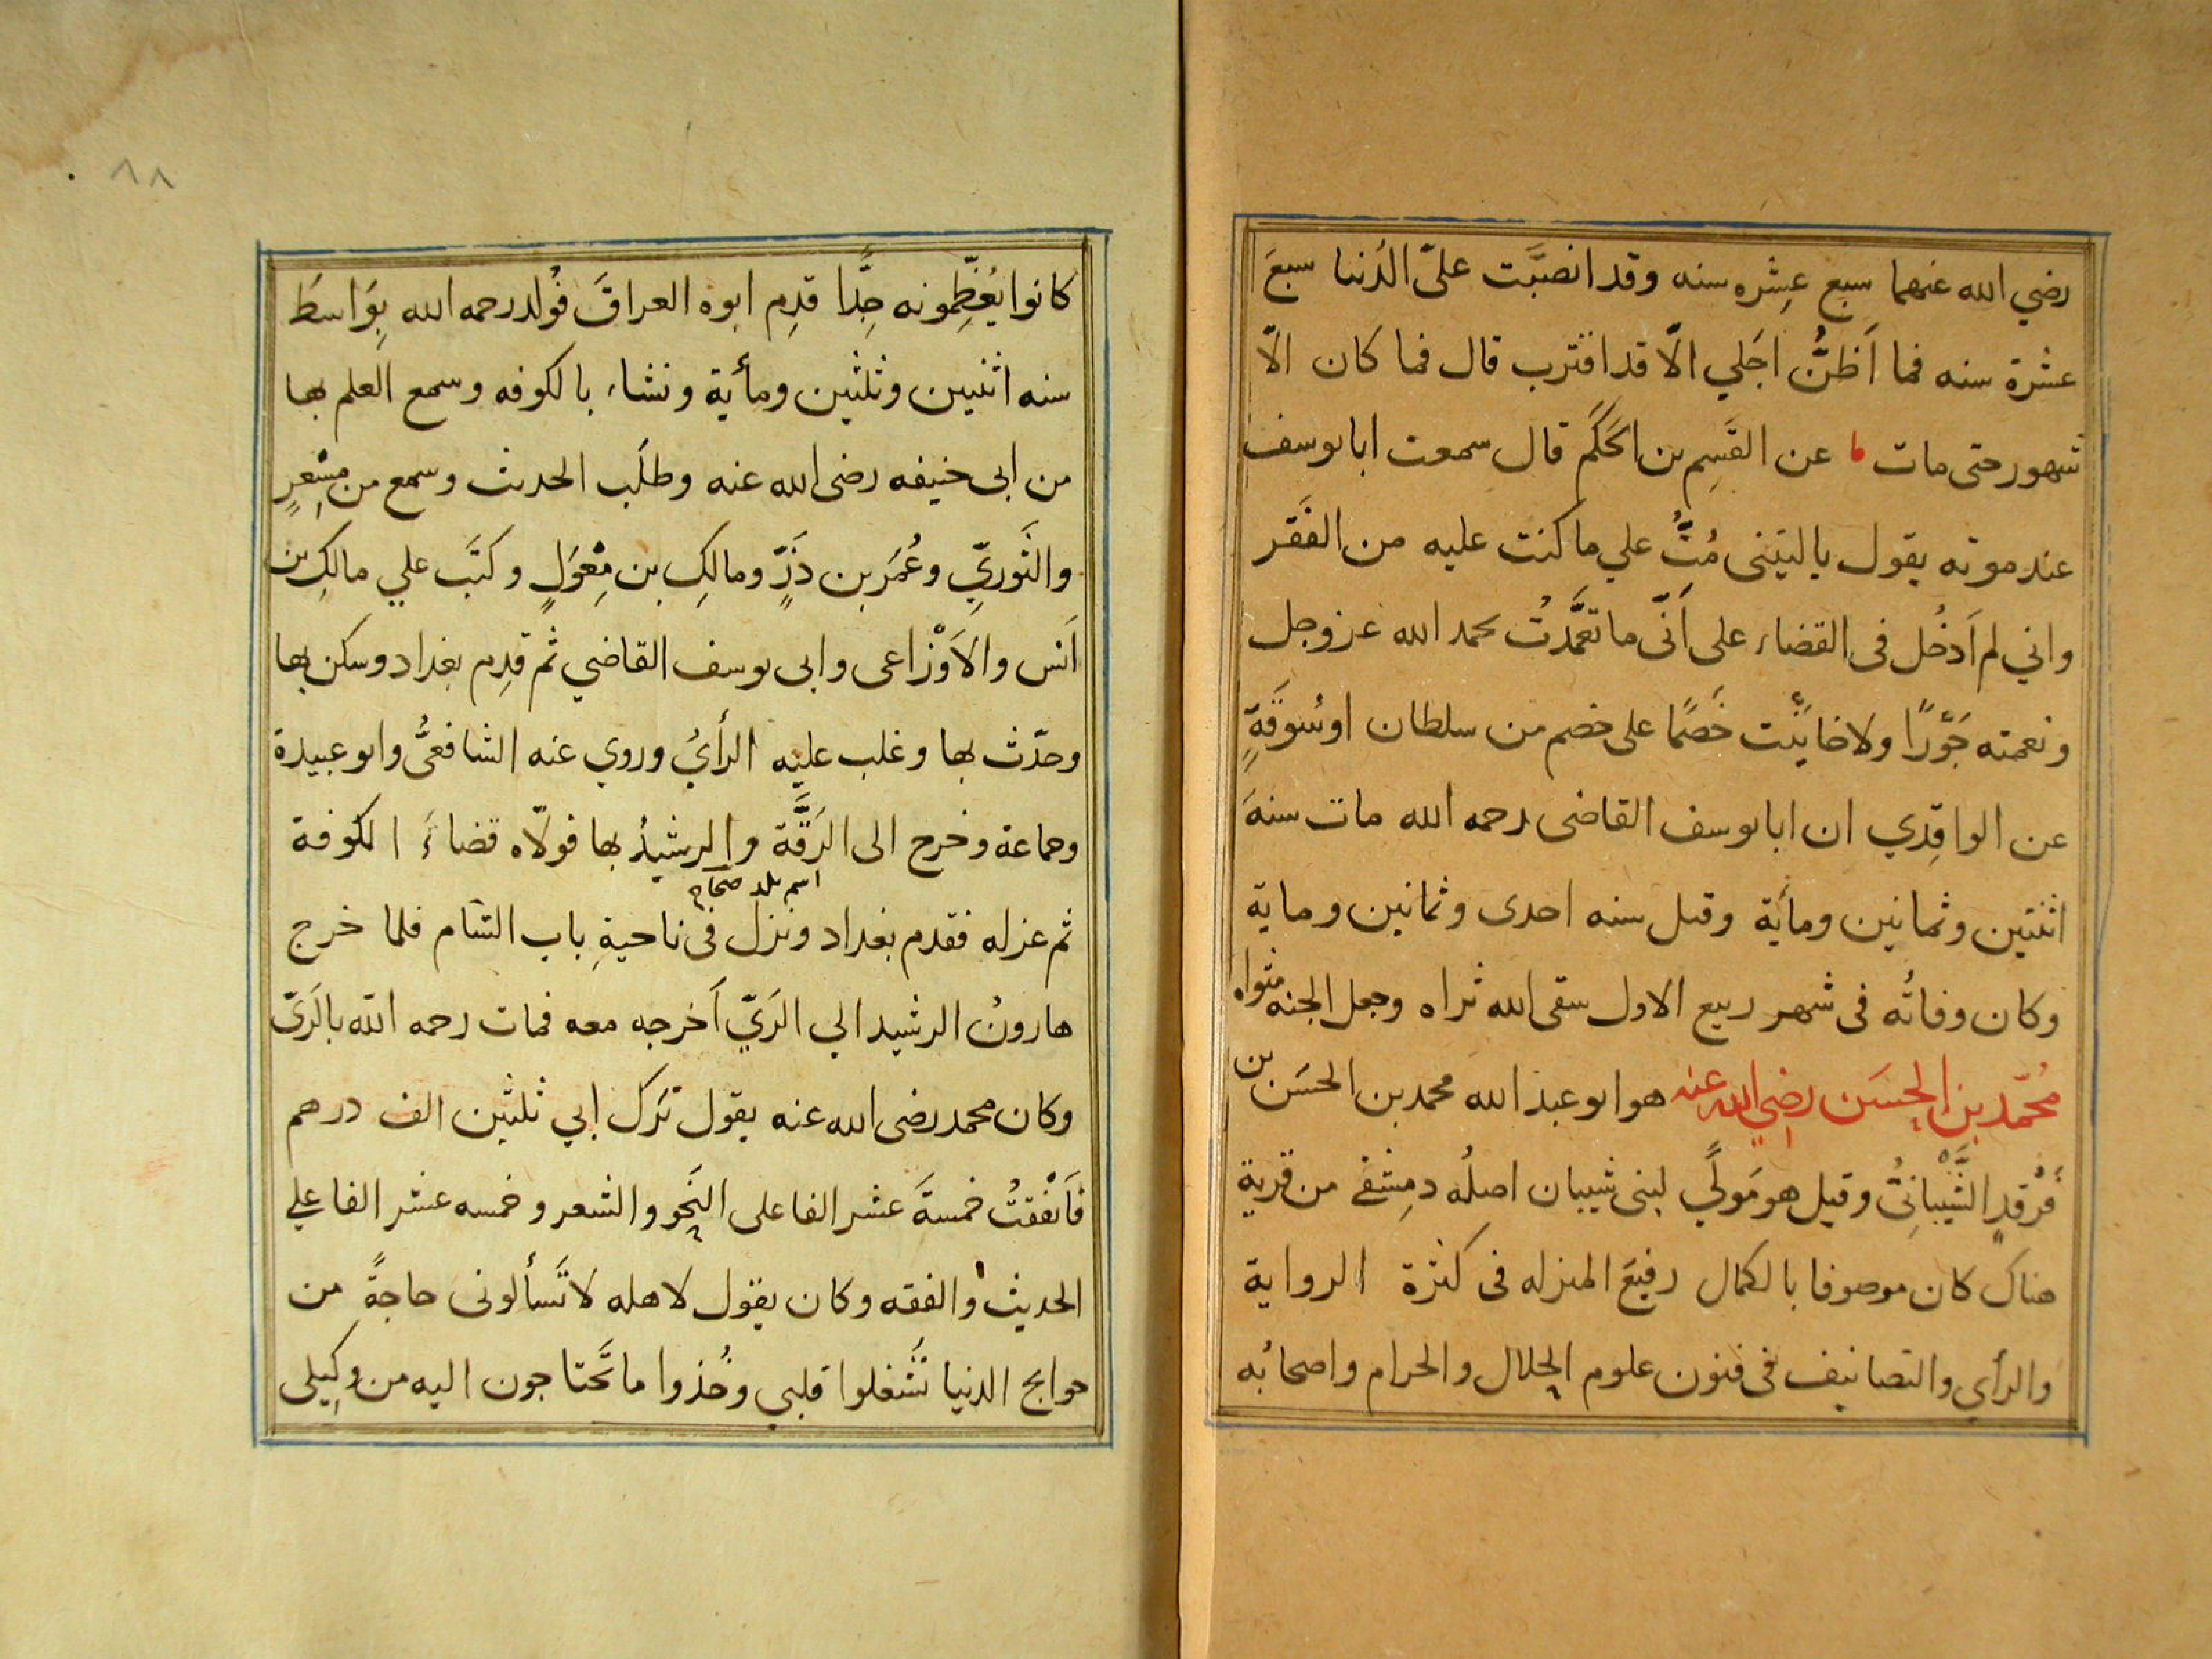 رضي الله عنهما سبع عشره سنه وقد انصبَّت علىّ الدُنيا سبعَ
عشرة سنه فما اَظنُّ اجَلي الّا قد اقترب قال فما كان الّا
شهور حتى مات عن القَسِم بن الحَكَم قال سمعت ابا يوسف
عند موته يقول ياليتنى مُتُّ علي ما كنت عليه من الفَقر
واني لم اَدخُل فى القضاء على اَنّى ما تعمَّدتُ بحمد الله عز وجل
ونعمته جَوْرًا ولا خابَيْت خَصمًا على خصم من سلطان او سُوقَةٍ
عن الواقِدي ان ابا يوسف القاضى رحمه الله مات سنةَ
اثنتين وثمانين ومأية وقيل سنه احدى وثمانين وماية
وكان وفاتُه فى شهر ربيع الاول سقى الله ثراه وجعل الجنه مثواه
مُحمّد بن الحسَن رضي الله عنه هو ابو عبد الله محمد بن الحسَن بن
فَرْقدٍ الشَّيْبانِىُّ وقيل هو مَولًي لبنى شيبان اصلُه دمِشقى من قرية
هناك كان موصوفا بالكمال رفيعَ المنزله فى كثرة الرواية
والرأي والتصانيف فى فنون علوم الحلال والحرام واصحابُه
٨٨
كانوا يُعَظِّمونه جِدًّا قدِم ابوه العراقَ فوُلد رحمه الله بِوَاسطَ
سنه اثنيين وثلثين ومأية ونشاء بالكوفه وسمع العلم بها
من ابى حنيفه رضى الله عنه وطلَب الحديث وسمع من مِسْعرٍ
والثَوريِّ وعُمَر بن ذَرٍّ ومالكِ بن مِغْوَلٍ وكتَب علي مالكِ بن
اَنس والاَوْزاعى وابى يوسف القاضي ثم قدِم بغداد وسكن بها
وحدّث بها وغلب عليه الرأيُ وروي عنه الشافعىُّ وابو عبيدة
وجماعة وخرج الى الرَقَّة والرشيدُ بها فولّاه قضاءَ الكوفة
اسم بلد صحاح
ثم عزله فقدم بغداد ونزل فى ناحيةِ باب الشام فلما خرج
هارونُ الرشيد الي الرَيّ اَخرجه معه فمات رحمه الله بالرَىّ
وكان محمد رضى الله عنه يقول تَرك اَبي ثلثين الف درهم
فاَنْفقتُ خمسةَ عشر الفا على النَحو والشعر وخمسه عشر الفا علي
الحديث والفقه وكان يقول لاهله لا تَسألونى حاجةً من
حوايج الدنيا تَشغلوا قلبي وخُذوا ما تَحتاجون اليه من وكِيلى